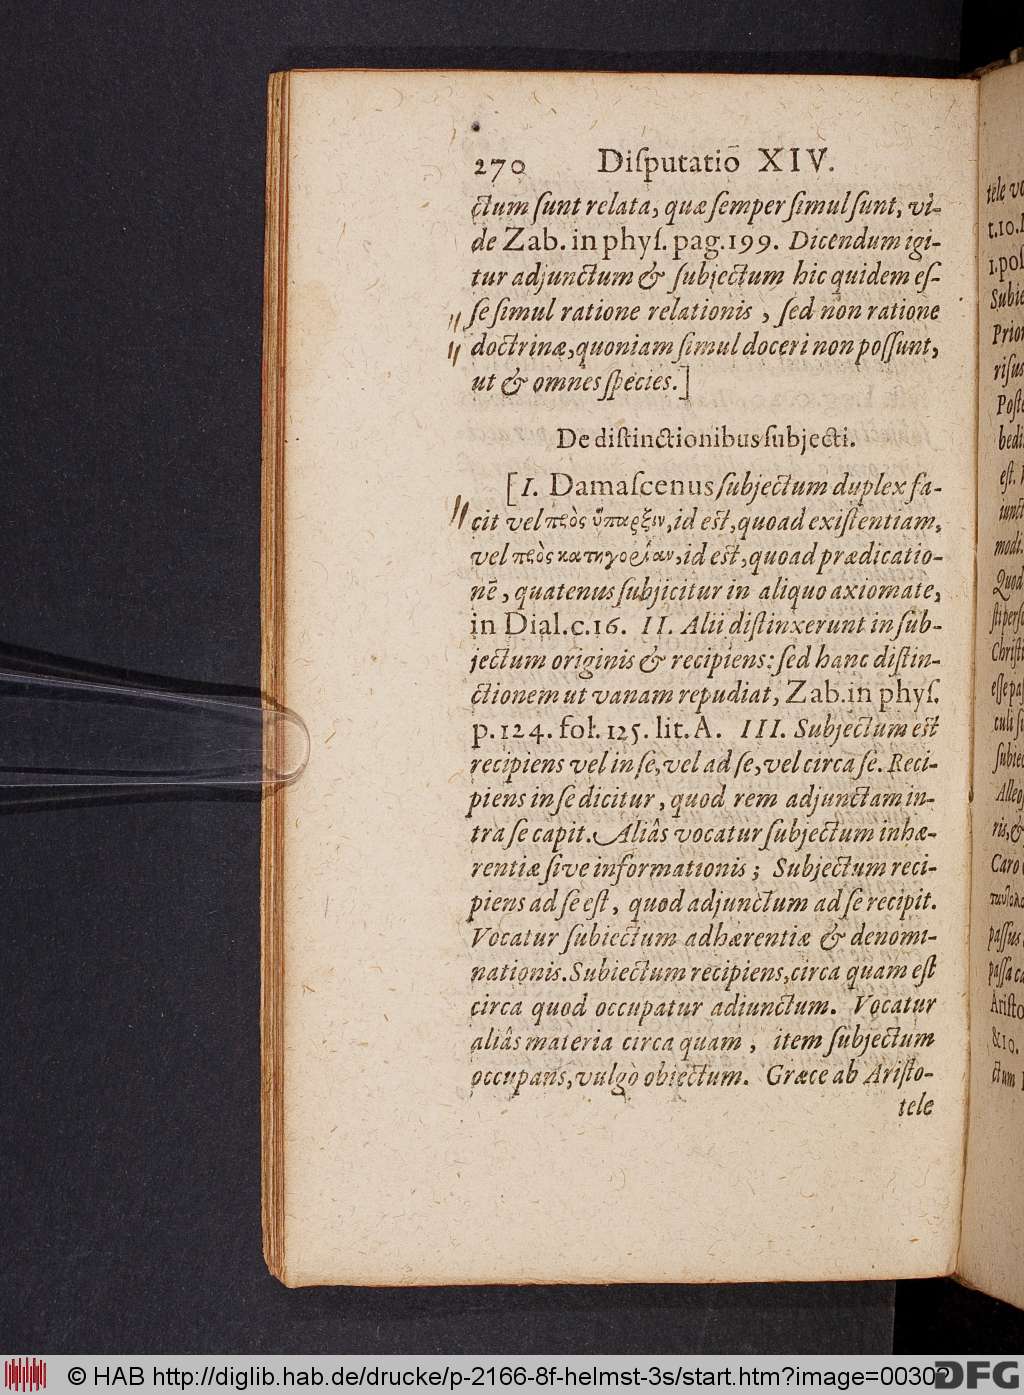 270 Diſputatiō XIV.
ctum ſunt relata, quæ ſemper ſimul ſunt, vi-
de Zab. in phyſ. pag. 199. Dicendum igi-
tur adjunctum & ſubjectum hic quidem eſ-
ſe ſimul ratione relationis, ſed non ratione
doctrinæ, quoniam ſimul doceri non poſſunt,
ut & omnes ſpecies.]
De diſtinctionibus ſubjecti.
[I. Damaſcenus ſubjectum duplex fa-
cit vel πρὸς ὕπαρξιν, id eſt, quoad exiſtentiam,
vel πρὸς κατηγορίαν, id eſt, quoad prædicatio-
nē, quatenus ſubjicitur in aliquo axiomate,
in Dial. c. 16. II. Alii diſtinxerunt in ſub-
jectum originis & recipiens: ſed hanc diſtin-
ctionem ut vanam repudiat, Zab. in phyſ.
p. 124. fol. 125. lit. A. III. Subjectum eſt
recipiens vel in ſe, vel ad ſe, vel circa ſe. Reci-
piens in ſe dicitur, quod rem adjunctam in-
tra ſe capit. Aliâs vocatur ſubjectum inhæ-
rentiæ ſive informationis; Subjectum reci-
piens ad ſe eſt, quod adjunctum ad ſe recipit.
Vocatur ſubiectum adhærentiæ & denomi-
nationis. Subiectum recipiens, circa quam eſt
circa quod occupatur adiunctum. Vocatur
aliâs materia circa quam, item ſubjectum
occupans, vulgò obiectum. Græce ab Ariſto-
tele
tele
t. 10.
Subie
Prior
riſus
Poſte
bedi
eſt.
juncti
modi.
Quod
ſti perſo
Chriſti
eſſe paſ
culi ſi
ſubiec
Alleg
ris, &
Caro
paſſus
paſſa ca
Ariſto
&10.
ctum
© HAB http://diglib.hab.de/drucke/p-2166-8f-helmst-3s/start.htm?image=00302
DFG